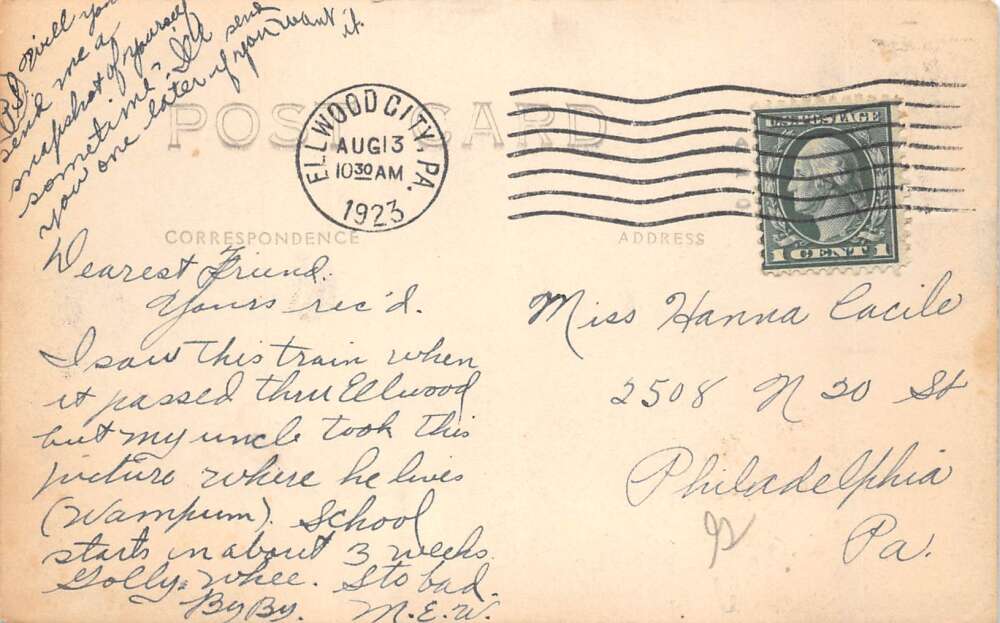 P.S. Will you
send me a
snapshot of yourself
sometime, I'll send
you one later if you want it
POST CARD
ELLWOOD CITY, PA.
AUG 13
10 30 AM
1923
U.S. POSTAGE
1 CENT 1
CORRESPONDENCE
ADDRESS
Dearest Friend.
Yours rec'd.
I saw this train when
it passed thru Ellwood
but my uncle took this
picture where he lives
(Wampum). School
starts in about 3 weeks
Golly, whee. S to bad.
By By. M.E.W.
Miss Hanna Cacile
2508 N 20 St
Philadelphia
Pa.